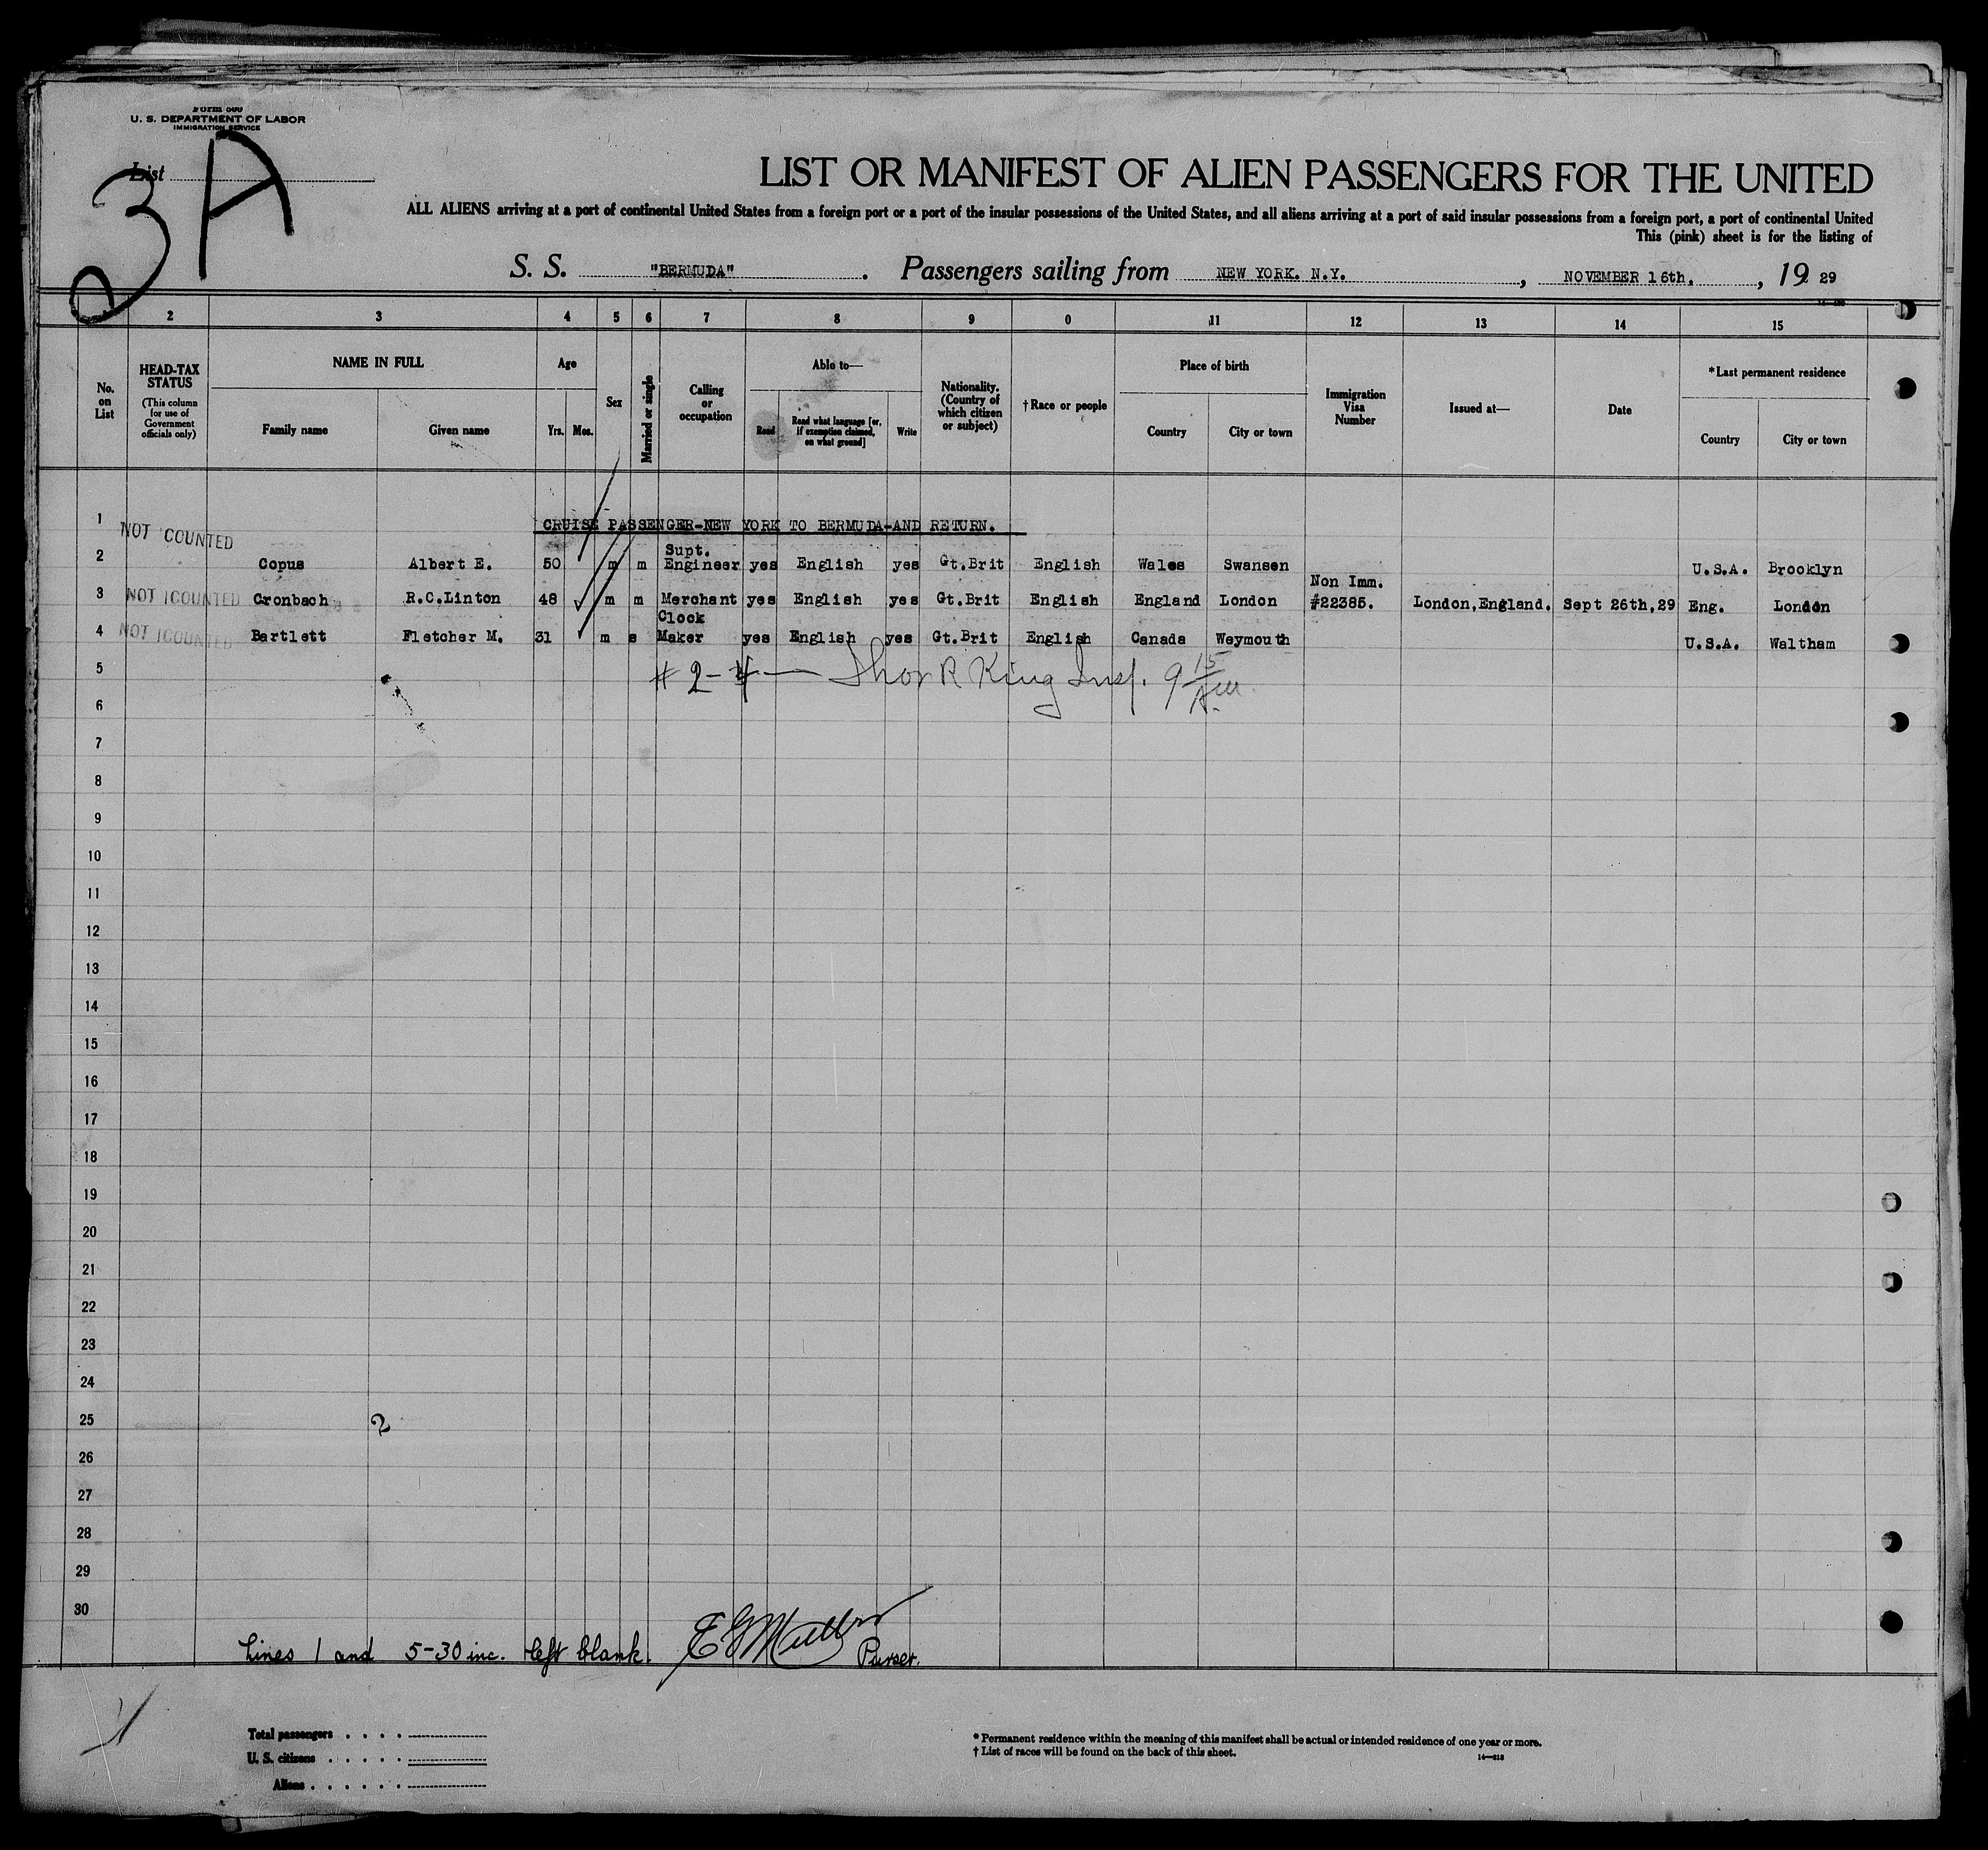 Form 500
U. S. DEPARTMENT OF LABOR
IMMIGRATION SERVICE
List
3A
LIST OR MANIFEST OF ALIEN PASSENGERS FOR THE UNITED
ALL ALIENS arriving at a port of continental United States from a foreign port or a port of the insular possessions of the United States, and all aliens arriving at a port of said insular possessions from a foreign port, a port of continental United
This (pink) sheet is for the listing of
S. S. "BERMUDA". Passengers sailing from NEW YORK. N.Y., NOVEMBER 16th., 19 29
2 3 4 5 6 7 8 9 0 11 12 13 14 15
No. on List
HEAD-TAX STATUS
(This column for use of Government officials only)
NAME IN FULL
Family name Given name
Age
Yrs. Mos.
Sex
Married or single
Calling or occupation
Able to—
Read
Read what language [or, if exemption claimed, on what ground]
Write
Nationality. (Country of which citizen or subject)
† Race or people
Place of birth
Country City or town
Immigration Visa Number
Issued at—
Date
* Last permanent residence
Country City or town
1 CRUISE PASSENGER-NEW YORK TO BERMUDA-AND RETURN.
2 NOT COUNTED Copus Albert E. 50 m m Supt. Engineer yes English yes Gt.Brit English Wales Swansen U.S.A. Brooklyn
3 NOT COUNTED Cronbach R.C.Linton 48 m m Merchant yes English yes Gt.Brit English England London Non Imm. #22385. London,England. Sept 26th,29 Eng. London
4 NOT COUNTED Bartlett Fletcher M. 31 m s Clock Maker yes English yes Gt.Brit English Canada Weymouth U.S.A. Waltham
5 # 2-4 — Thos R King Insp. 9 15 AM
6
7
8
9
10
11
12
13
14
15
16
17
18
19
20
21
22
23
24
25 2
26
27
28
29
30
Lines 1 and 5-30 inc. left blank. Purser.
Total passengers
U. S. citizens
Aliens
* Permanent residence within the meaning of this manifest shall be actual or intended residence of one year or more.
† List of races will be found on the back of this sheet.